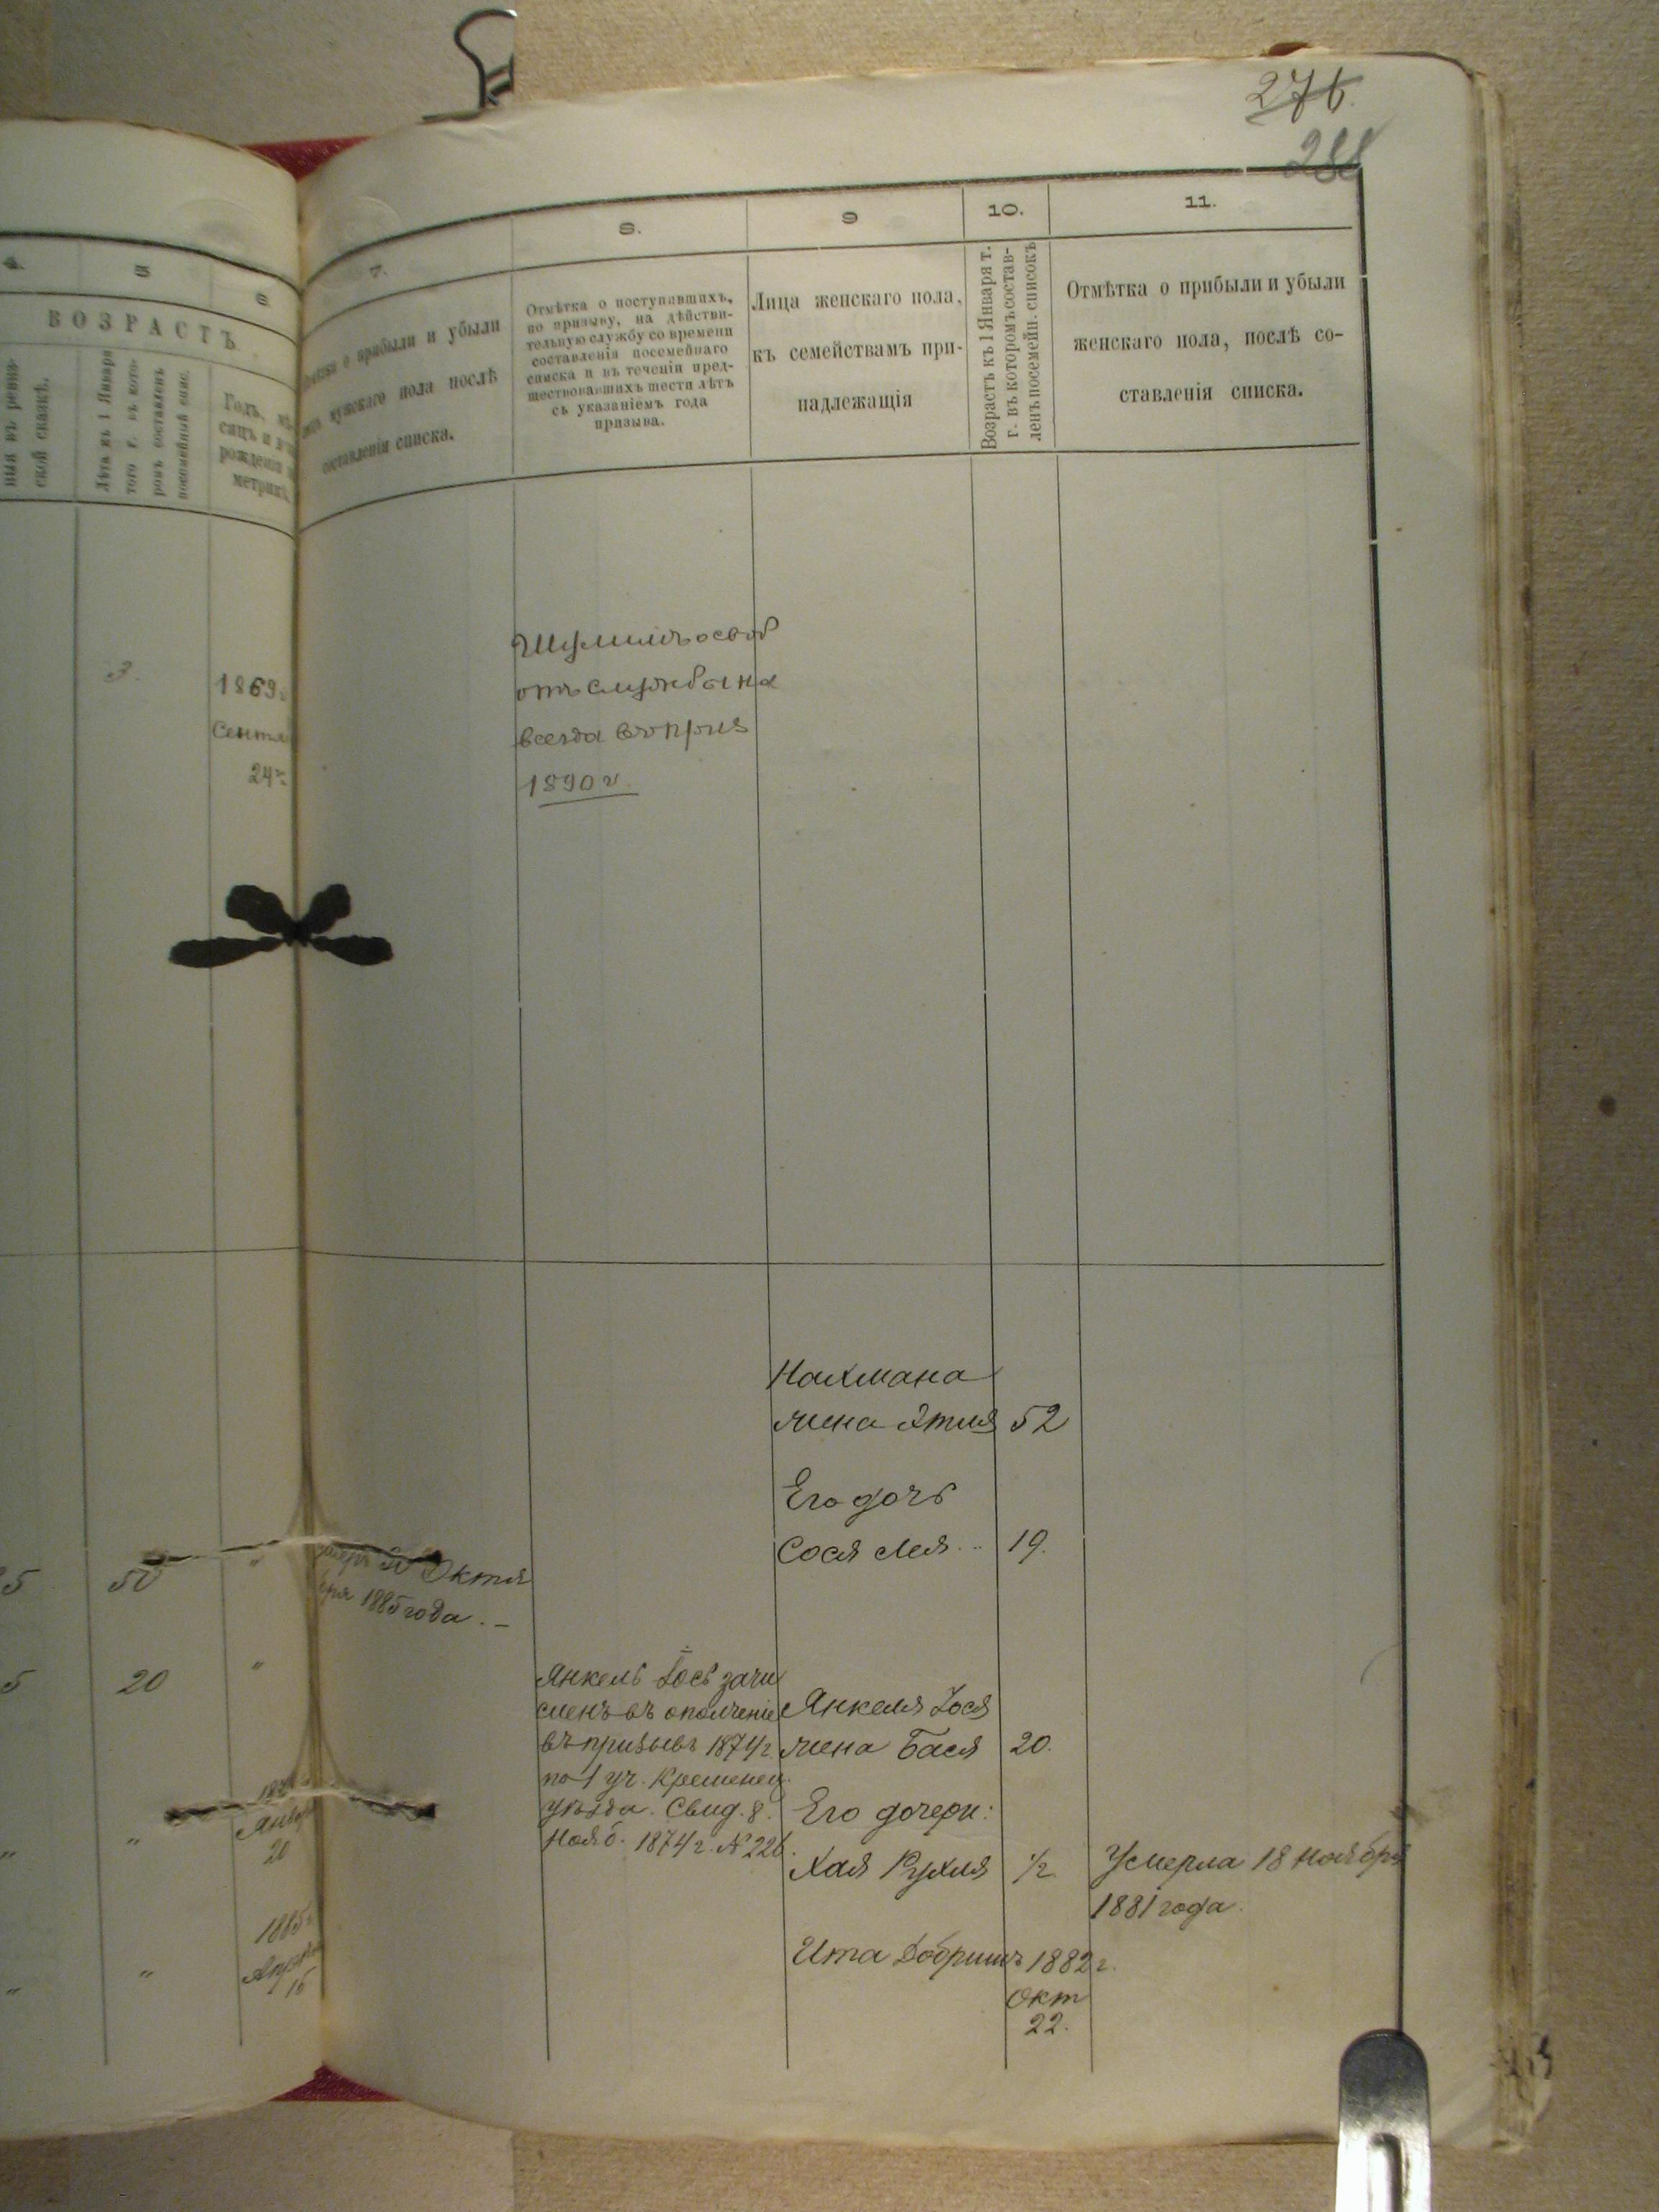 276.
4.
5
6
7.
8.
9
10.
11.
ВОЗРАСТЪ
ныя въ ревиз-
ской сказкѣ.
Лѣта къ 1 Января
того г. въ кото-
ромъ составленъ
посемейный спис.
Годъ, мѣ-
сяцъ и
рожденія
метрик.
о прибыли и убыли
мужскаго пола послѣ
составленія списка.
Отмѣтка о поступавшихъ,
по призыву, на дѣйстви-
тельную службу со времени
составленія посемейнаго
списка и въ теченіи пред-
шествовавшихъ шести лѣтъ
съ указаніемъ года
призыва.
Лица женскаго пола,
къ семействамъ при-
надлежащія
Возрастъ къ 1 Января т.
г. въ которомъ состав-
ленъ посемейн. списокъ
Отмѣтка о прибыли и убыли
женскаго пола, послѣ со-
ставленія списка.
3.
1869г.
Сентя
24
освоб
отъ службы на
всегда въ приз
1890 г.
Нахмана
жена 52
Его дочь
Сося Лея .. 19.
5 50 "
30 Октя
бря 1885 года. –
5 20 "
Янкель Іось зачи
сленъ въ ополченіе
въ призывъ 1874 г.
по 1 уч. Кременец.
уѣзда. Свид. 8.
Нояб. 1874 г. № 226.
Янкеля Іося
жена Бася 20.
Его дочери:
Хая Рухля 1/2
Умерла 18 Ноября
1881 года.
" "
Янвр
20
Ита Добришъ 1882 г.
Окт
22.
" "
1885
Апрѣля